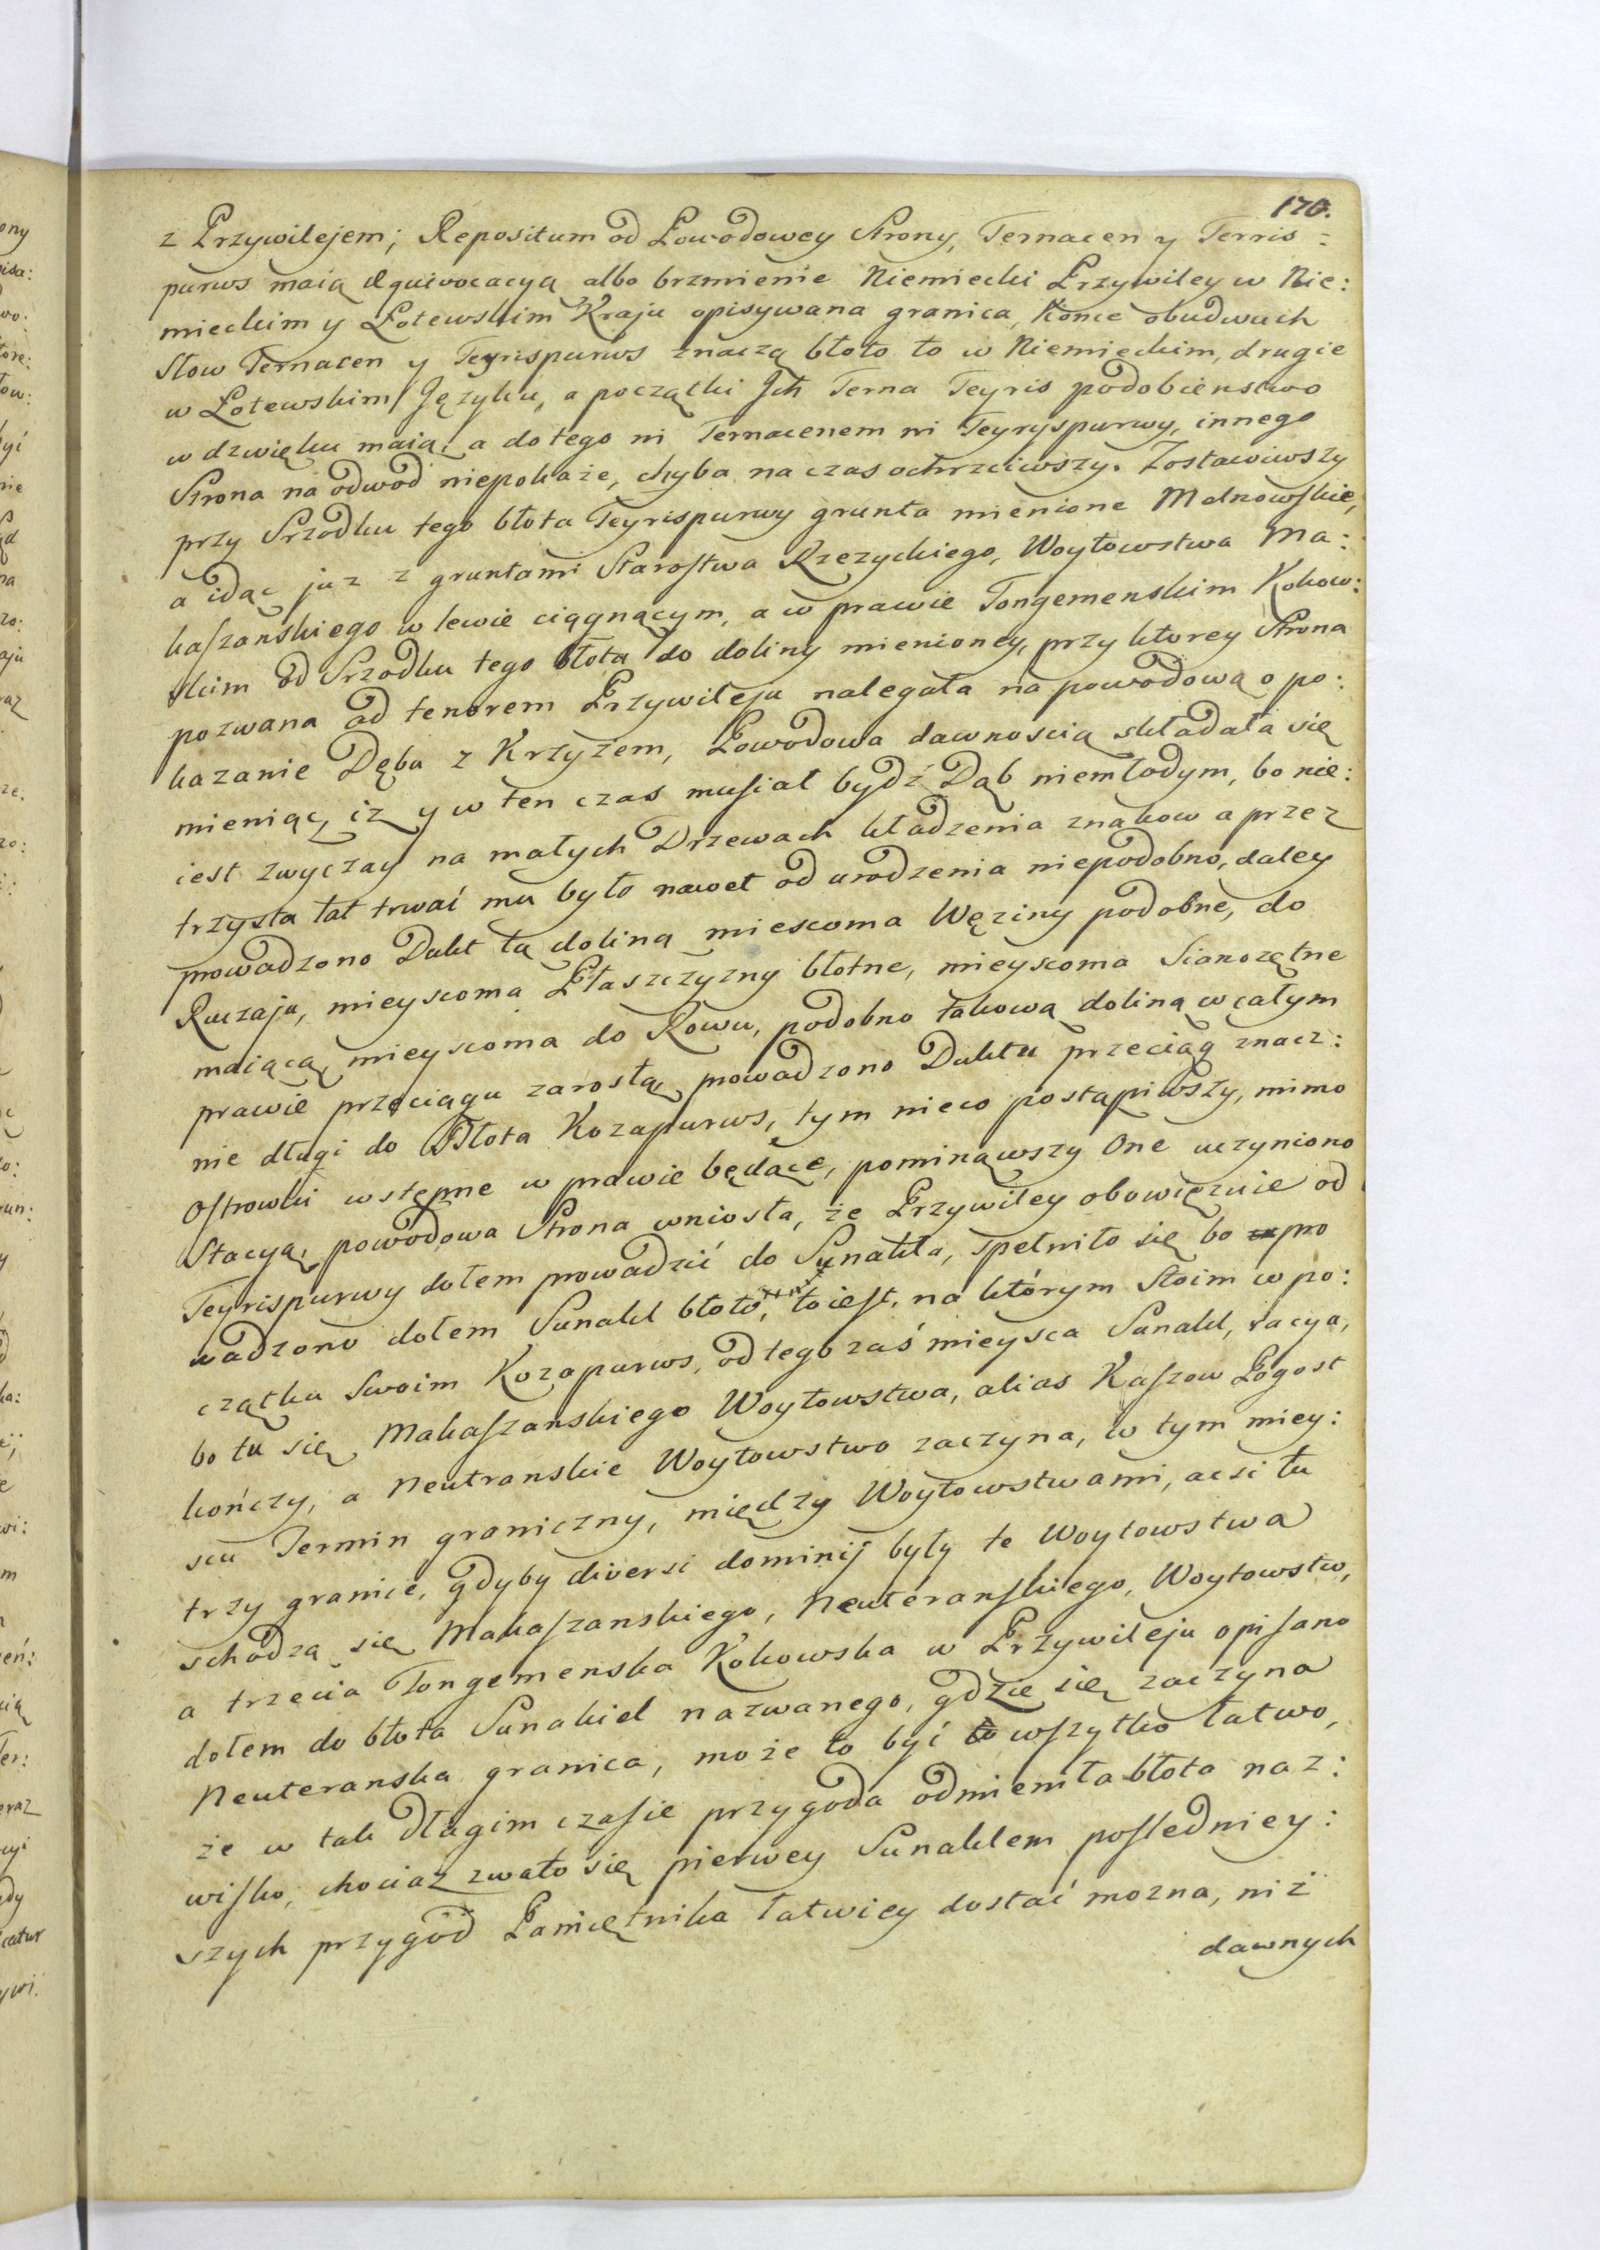 170.
z Przywilejem; Repositum od Powodowey Strony, Ternacen y Terris =
purws maią æquivocacyą albo brzmienie Niemiecki Przywiley w Nie:
mieckim y Łotewskim Kraju opisywana granica, Konce obudwuch
Słow Ternacen y Teyrispurws znaczą błoto to w Niemieckim, drugie
w Łotewskim Języku, a początki Jch Terna Teyris podobienstwo
w dzwięku maią, a do tego ni Ternacenem ni Teyryspurwy, innego
Strona na odwod niepokaże, chyba na czas ochrzciwszy. Zostawiwszy
przy Srzodku tego błota Teyrispurwy grunta mienione Malnowskie,
a idąc juz z gruntami Starostwa Rzezyckiego, Woytowstwa Ma:
kaszanskiego w lewie ciągnącym, a w prawie Tongemenskim Kokow:
skim od Srzodku tego błota do doliny mienioney, przy ktorey Strona
pozwana ad tenorem Przywileju nalegała na powodową o po:
kazanie Dęba z Krzyżem, Powodowa dawnoscią składała się
mieniąc, iz y w ten czas musiał bydź Dąb niemłodym, bo nie:
iest zwyczay na małych Drzewach kładzenia znakow a przez
trzysta lat trwać mu było nawet od urodzenia niepodobno, daley
prowadzono Dukt tą doliną miescoma Węziny podobne, do
Ruczaju, mieyscoma Płaszczyzny błotne, mieyscoma Sianozętne
maiącą, mieyscoma do Rowu, podobno takową doliną w całym
prawie przeciągu zarosłą, prowadzono Duktu przeciąg znacz:
nie długi do Błota Kozapurws, tym nieco postąpiwszy, mimo
Ostrowki wstępne w prawie będące, pominąwszy One uczyniono
Stacyą, powodowa Strona wniosła, że Przywiley obowięzuie od
Teyrispurwy dołem prowadzić do Sunakla, spełniło się bo pro
wadzono dołem Sunakl błoto, to iest, na którym Stoim w po:
czątku Swoim Kozapurws, od tego zaś mieysca Sunakl, racya,
bo tu się Makaszanskiego Woytowstwa, alias Kaszow Pogost
kończy, a Neutranskie Woytowstwo zaczyna, w tym miey:
scu Termin graniczny, między Woytowstwami, acsi tu
trzy granice, gdyby diversi dominij były te Woytowstwa
schodzą się Makaszanskiego, Neuteranskiego, Woytowstw,
a trzecia Tongemenska Kokowska w Przywileju opisano
dołem do błota Sunakiel nazwanego, gdzie się zaczyna
Neuteranska granica, może to być wszytko łatwo,
że w tak długim czasie przygoda odmieniła błota naz:
wisko, chociaz zwało się pierwey Sunaklem posledniey:
szych przygod Pamiętnika łatwiey dostać mozna, niż
dawnych